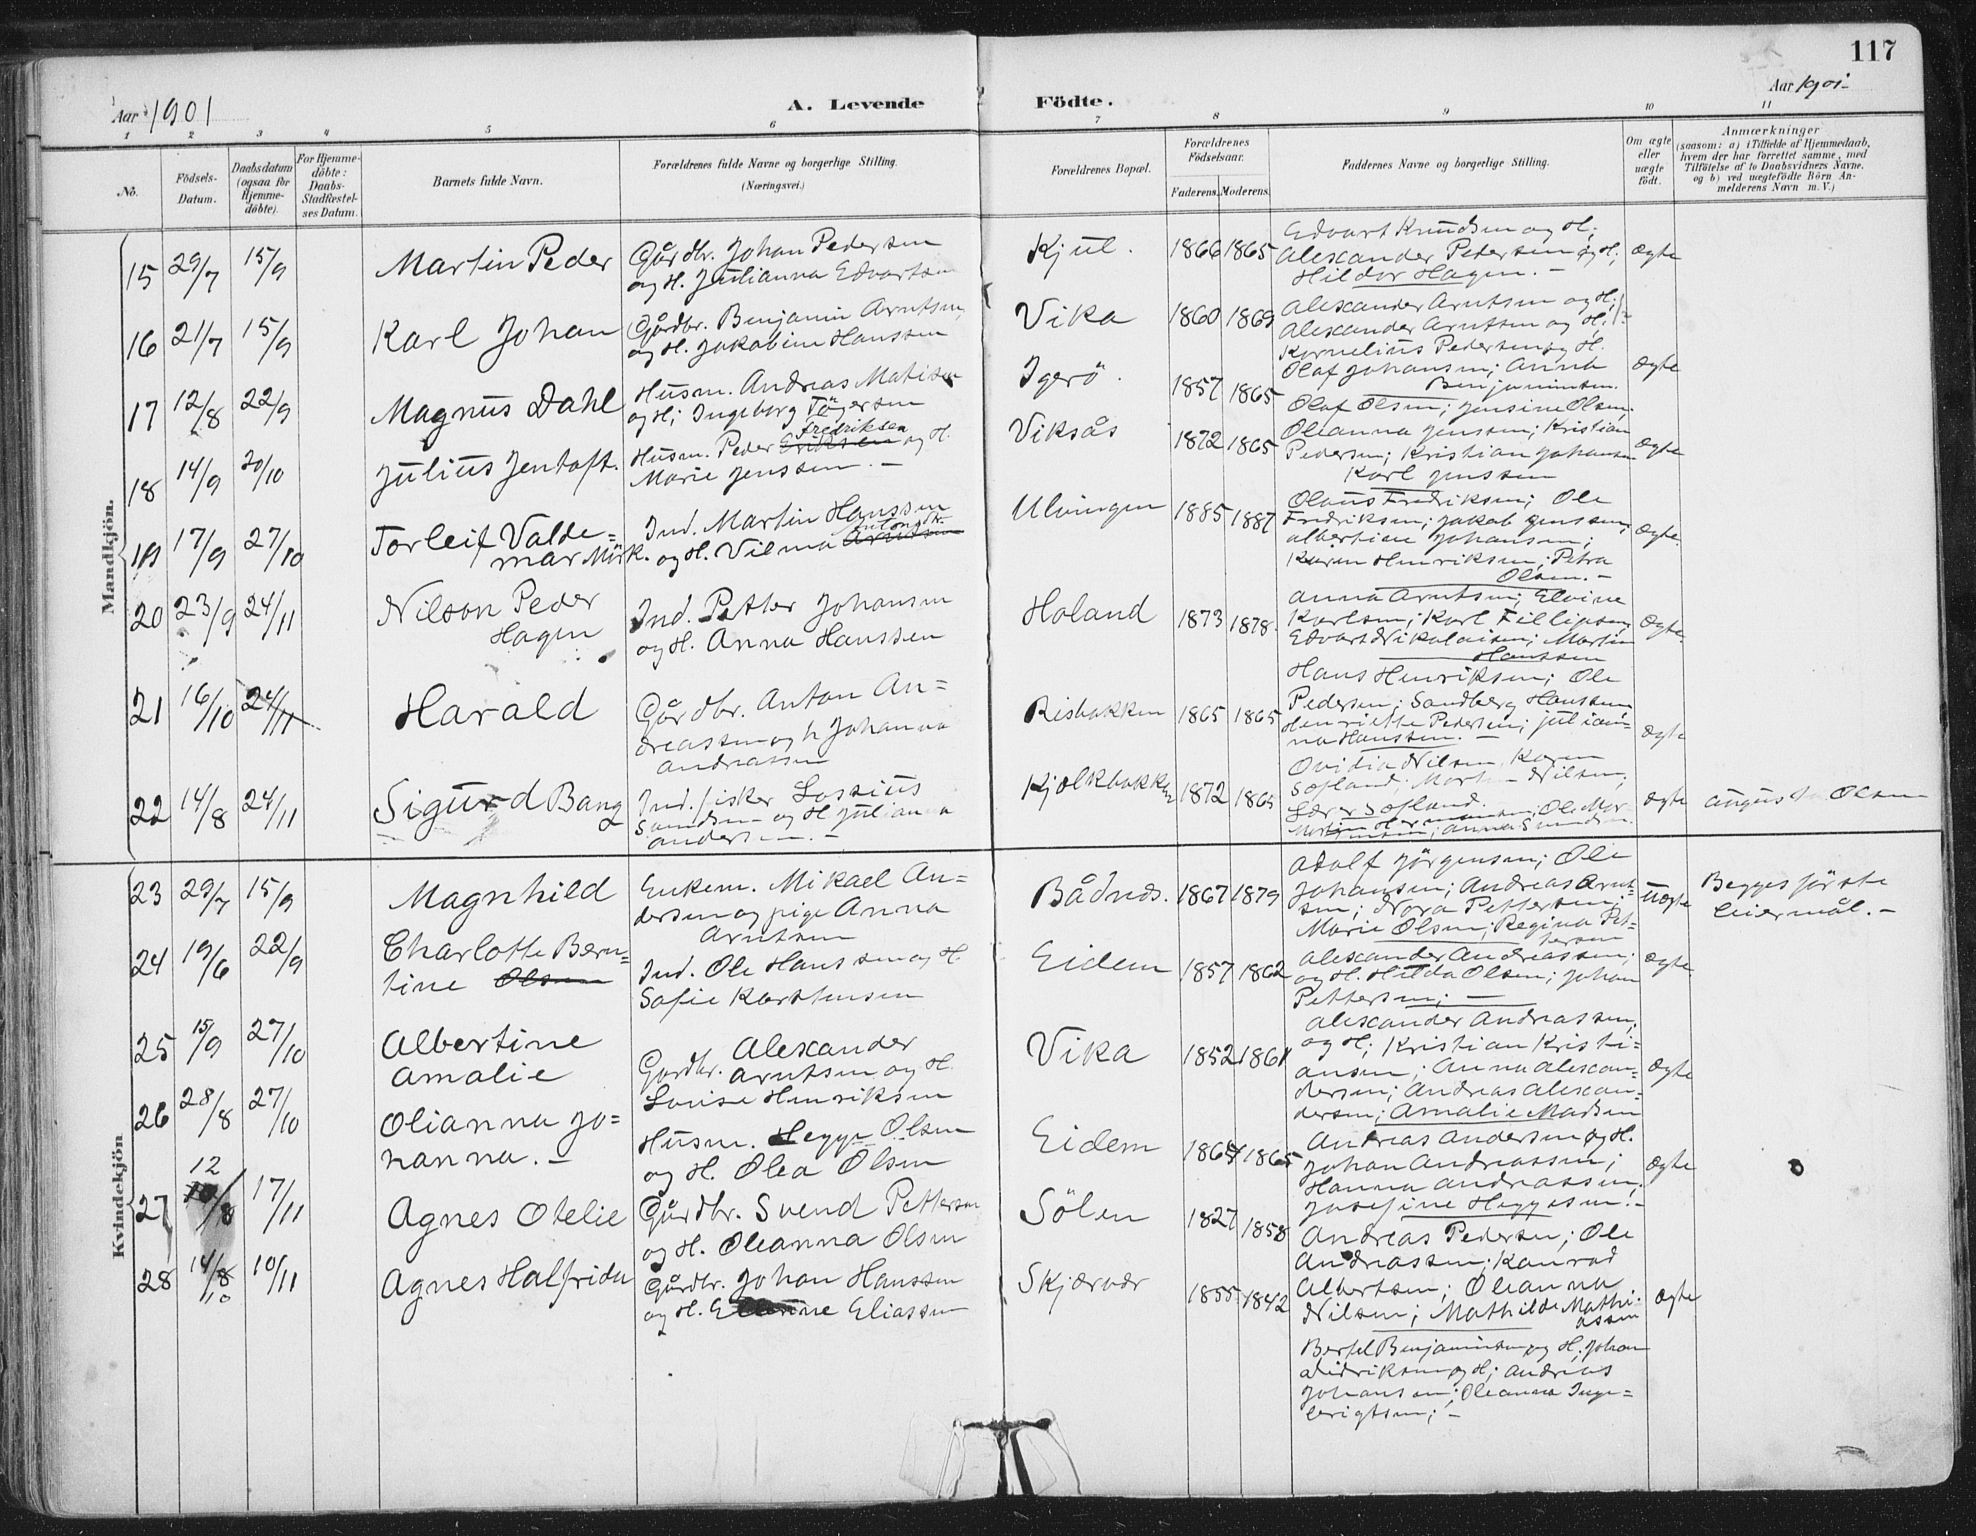 117
Aar 1901
A. Levende Födte.
Aar 1901
1 2 3 4 5 6 7 8 9 10 11
No.
Födsels-Datum.
Daabsdatum (ogsaa for Hjemme-döbte).
For Hjemme-döbte: Daabs-Stadfæstel-ses Datum.
Barnets fulde Navn.
Forældrenes fulde Navne og borgerlige Stilling.
(Næringsvei.)
Forældrenes Bopæl.
Forældrenes Födselsaar.
Faderens. Moderens.
Faddernes Navne og borgerlige Stilling.
Om ægte eller uægte födt.
Anmærkninger
(saasom: a) i Tilfælde af Hjemmedaab,
hvem der har forrettet samme, med
Tilföielse af to Daabsvidners Navne,
og b) ved uægtefödte Börn An-
melderens Navn m. V.)
Mandkjön.
15 29/7 15/9 Martin Peder
Gårdbr. Johan Pedersen
og H. Julianna Edvartsen
Kjul. 1866 1865
Edvart Knudsen og H;
Alexander Pedersen og H;
Hildor Hagen. -
Ægte
16 21/7 15/9 Karl Johan
Gårdbr. Benjamin Arntsen
og H. Jakobine Hanssen
Vika 1860 1869
Alexander Arntsen og H;
Alexander Arntsen og H;
Kornelius Pedersen og H.
17 12/8 22/9 Magnus Dahl
Husm. Andreas Matisen
og H; Ingeborg Tögersen
Igerö. 1857 1865
Olaf Johansen; Anna
Benjaminsen.
Olaf Olsen; Jensine Olsen,
Ægte
18 14/9 20/10 Julius Jentoft.
Husm. Peder Eriksen fredriksen og H.
Marie Jenssen. -
Viksås 1872 1865
Oleanna Jenssen; Kristian
Pedersen; Kristian Johansen
Karl Jenssen
Ægte
19 17/9 27/10 Torleif Valde=
mar Mörk.
Ind. Martin Hanssen
og H. Vilma Arntsen
Ulvingen 1885 1887
Olaus Fredriksen; Ole
Fredriksen; Jakob Jenssen;
Albertine Johansen;
Karen Henriksen; Petra
Olsen. -
Ægte.
20 23/9 24/11 Nilson Peder
Hagen
Ind. Petter Johansen
og H. Anna Hanssen
Holand 1873 1878.
Anna Arntsen; Elvine
Karlsen; Karl Fillipsen,
Edvart Nikolaisen; Martin
Hanssen
Ægte.
21 16/10 24/11 Harald
Gårdbr. Anton An=
dreassen og h Johanna
Andreassen
Risbakken 1865 1865
Hans Henriksen; Ole
Pedersen; Sandberg Hanssen,
Henriette Pedersen; Julian=
na Hanssen. -
Ægte
22 14/8 24/11 Sigurd Bang
Ind. fisker Lossius
Svendsen og H Julianna
Andersen. -
Kjølkbakken 1872 1865
Ovidia Nilsen, Karen
Sofland; Morten Nilsen;
Lærer Sofland.
Anna Svendsen
Ægte
August Olsen
Kvindekjön
23 29/7 15/9 Magnhild
Enkem. Mikael An=
dersen og pige Anna
Arntsen
Bådnds. 1867 1879
Adolf Jørgensen; Ole
Johansen; Andreas Arnt=
sen; Nora Pettersen;
Marie Olsen, Regina Pet=
tersen
Uægte
Begges første
leiermål. -
24 19/6 22/9 Charlotte Bern=
tine Olsen
Ind. Ole Hanssen og H.
Sofie Karstensen
Eidem 1857 1862
Alexander Andreassen;
og H. Hilda Olsen; Johan
Pettersen; -
Ægte
25 15/9 27/10 Albertine
Amalie
Gardbr. Alexander
Arntsen og H.
Lovise Henriksen
Vika 1852 1861
Alexander Andreassen,
og H; Kristian Kristi=
ansen; Anna Alexan=
dersen; Andreas Alexan=
dersen; Amalie Madsen
Ægte
26 28/8 27/10 Olianna Jo=
hanna. -
Husm. Hegge Olsen
og H. Olea Olsen
Eidem 1865
Andreas Andersen og H.
Johan Andreassen;
Hanna Andreassen;
Josefine Heggesen. -
Ægte
27 12/8 17/11 Agnes Otelie
Gårdbr. Svend Pettersen
og H. Oleanna Olsen
Sölen 1827 1858
Andreas Pedersen; Ole
Andreassen; Konrad
Albertsen; Oleanna
Nilsen; Mathilde Mathi-
assen
28 14/10 10/11 Agnes Halfrida
Gårdbr. Johan Hanssen
og H. Eliassen
Skjærvær 1855 1842
Ægte
Bertel Benjaminsen og H; Johan
Didriksen og H; Andreas
Johansen; Oleanna Inge=
brigtsen; -